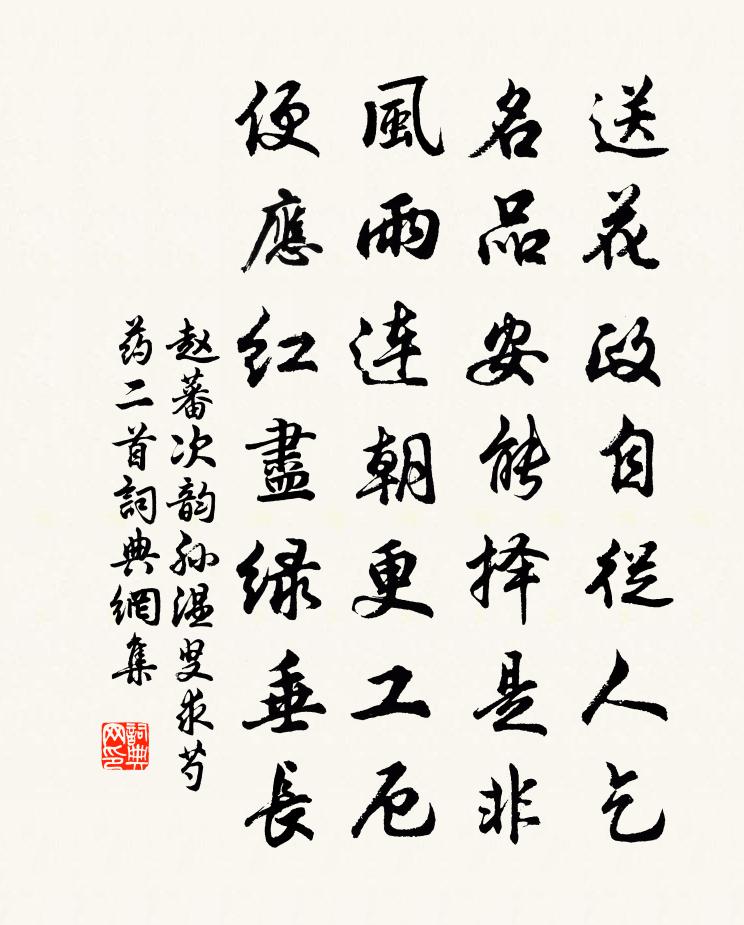 送花政自從人乞
名品安能择是非
風雨連朝更工厄
便應红盡緑垂長
赵蕃次韵孙温叟求芍
药二首詞典網集
詞典网印